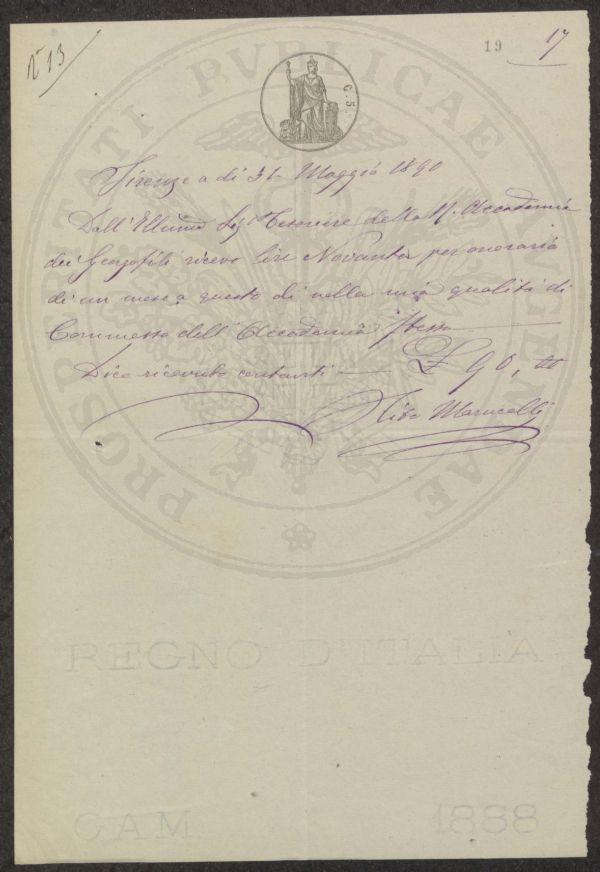 N° 13
19
17
G. 5.
Firenze a dì 31 Maggio 1890
Dall' Illmo Sigr Tesoriere della R. Accademia
dei Georgofili ricevo lire Novanta per onorario
di un mese a questo dì nella mia qualità di
Commesso dell' Accademia stessa
Dico ricevuto contanti £ 90, 00
Marucelli
PROSPERITATI PVBLICAE
REGNO D'ITALIA
CAM 1888